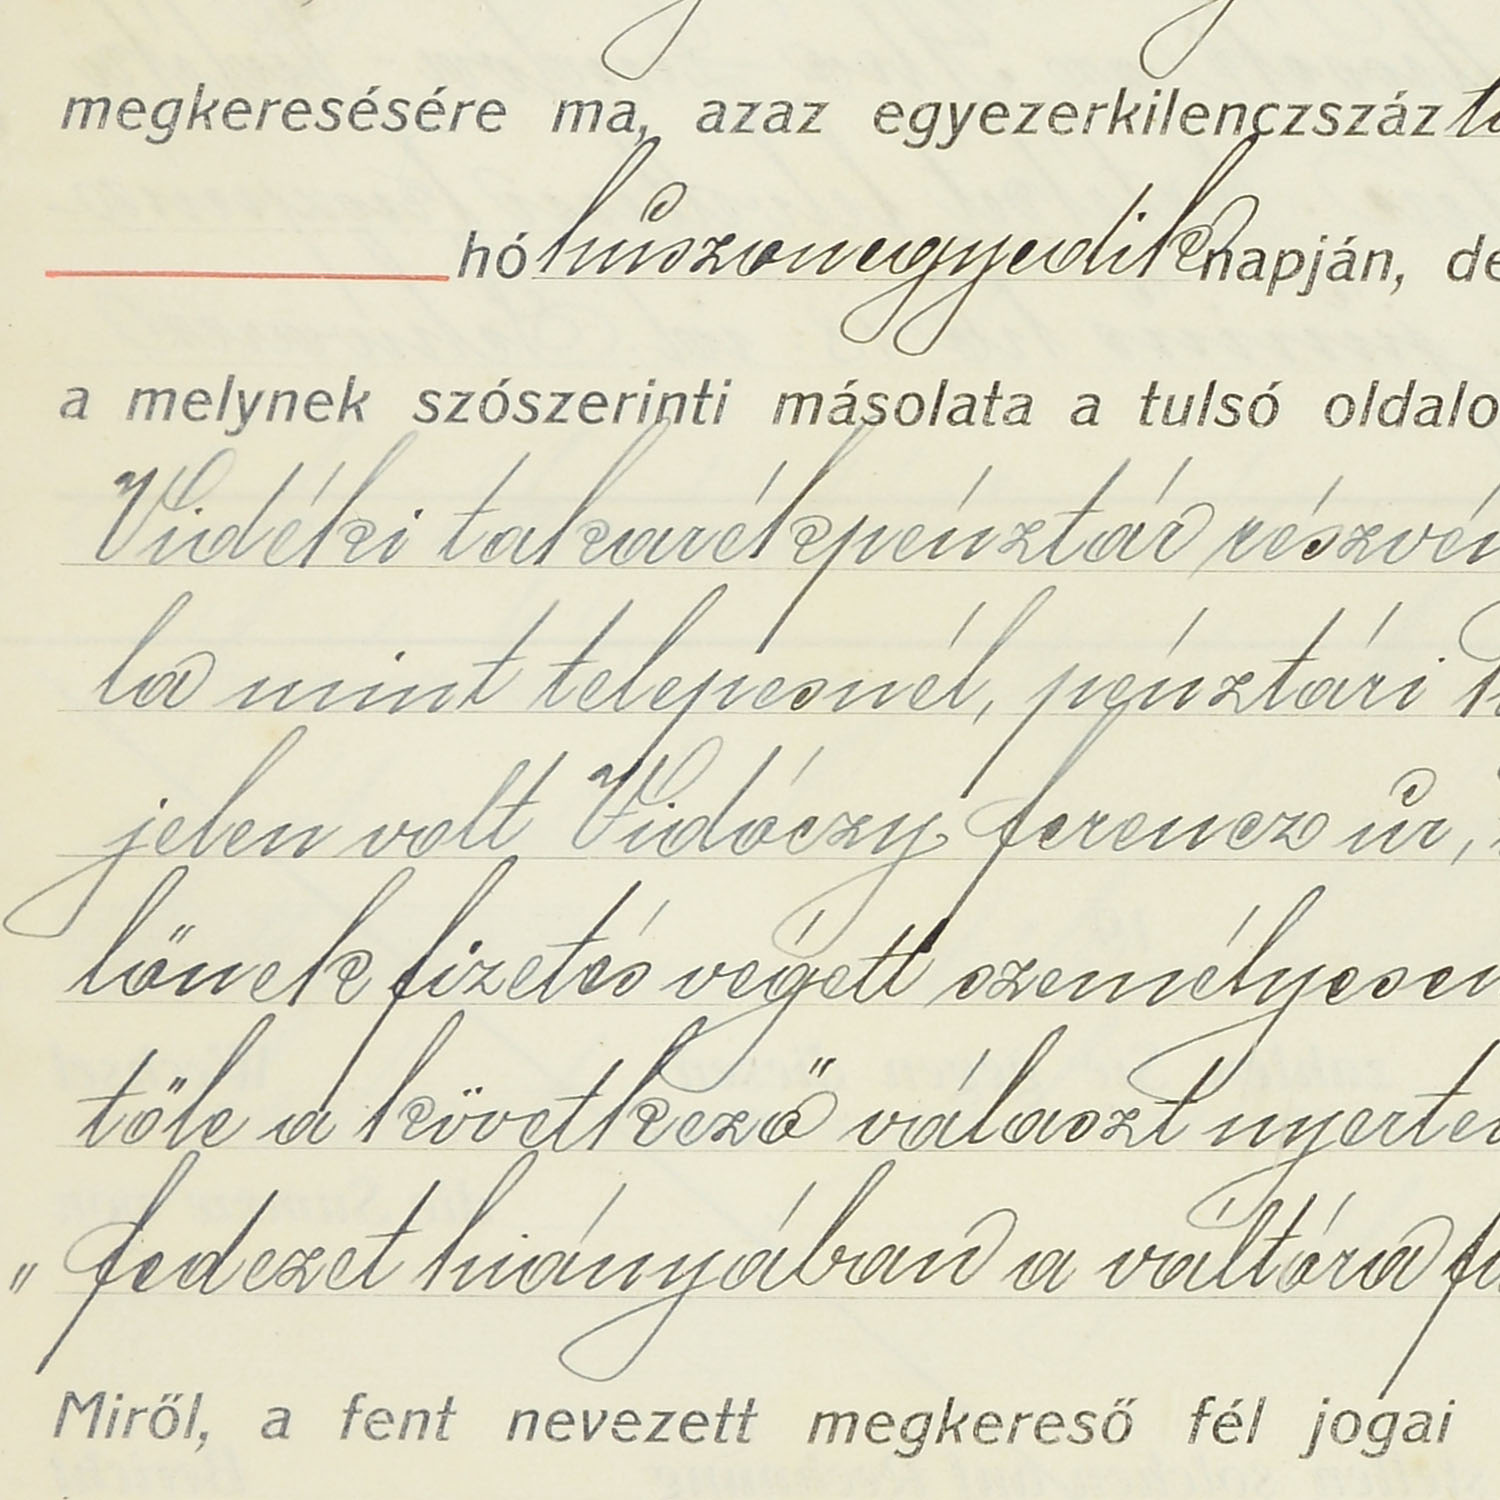 megkeresésére ma, azaz egyezerkilenczszáz
hó huszonegyedik napján, de
a melynek szószerinti másolata a tulsó oldalo
Vidéki takarékpénztár részvén
la mint telepesnél, pénztári
jelen volt Vidóczy ferencz úr,
lőnek fizetés végett személyesen
tőle a következő választ nyertem
„fedezet hiányában a váltóra fi
Miről, a fent nevezett megkereső fél jogai